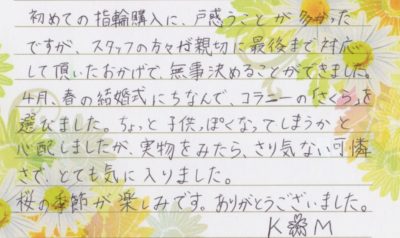 初めての指輪購入に、戸惑うことが多かった
ですが、スタッフの方々が親切に最後まで対応
して頂いたおかげで、無事決めることができました。
4月、春の結婚式にちなんで、コラニーの「さくら」を
選びました。ちょっと子供っぽくなってしまうかと
心配しましたが、実物をみたら、さり気ない可憐
さで、とても気に入りました。
桜の季節が楽しみです。ありがとうございました。
K M